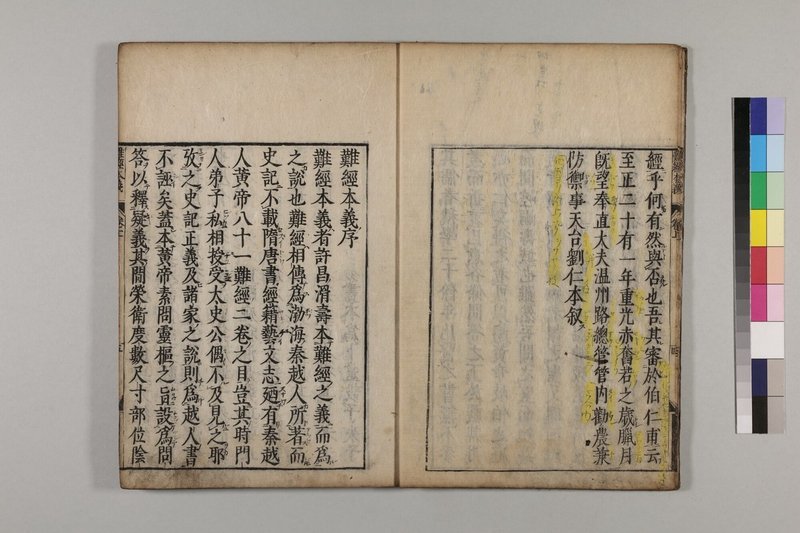 經乎何有然與否也吾其審於伯仁甫云
至正二十有一年重光赤奮若之歲臘月
既望奉直大夫温州路總管管内勸農兼
防禦事天台劉仁本叙
難經本義序
難經本義者許昌滑壽本難經之義而爲
之說也難經相傳爲渤海秦越人所著而
史記不載隋唐書經籍藝文志廼有秦越
人黄帝八十一難經二卷之目豈其時門
人弟子私相授受太史公偶不及見之耶
攷之史記正義及諸家之說則爲越人書
不誣矣蓋本黄帝素問靈樞之旨設爲問
答以釋疑義其間榮衛度數尺寸部位陰